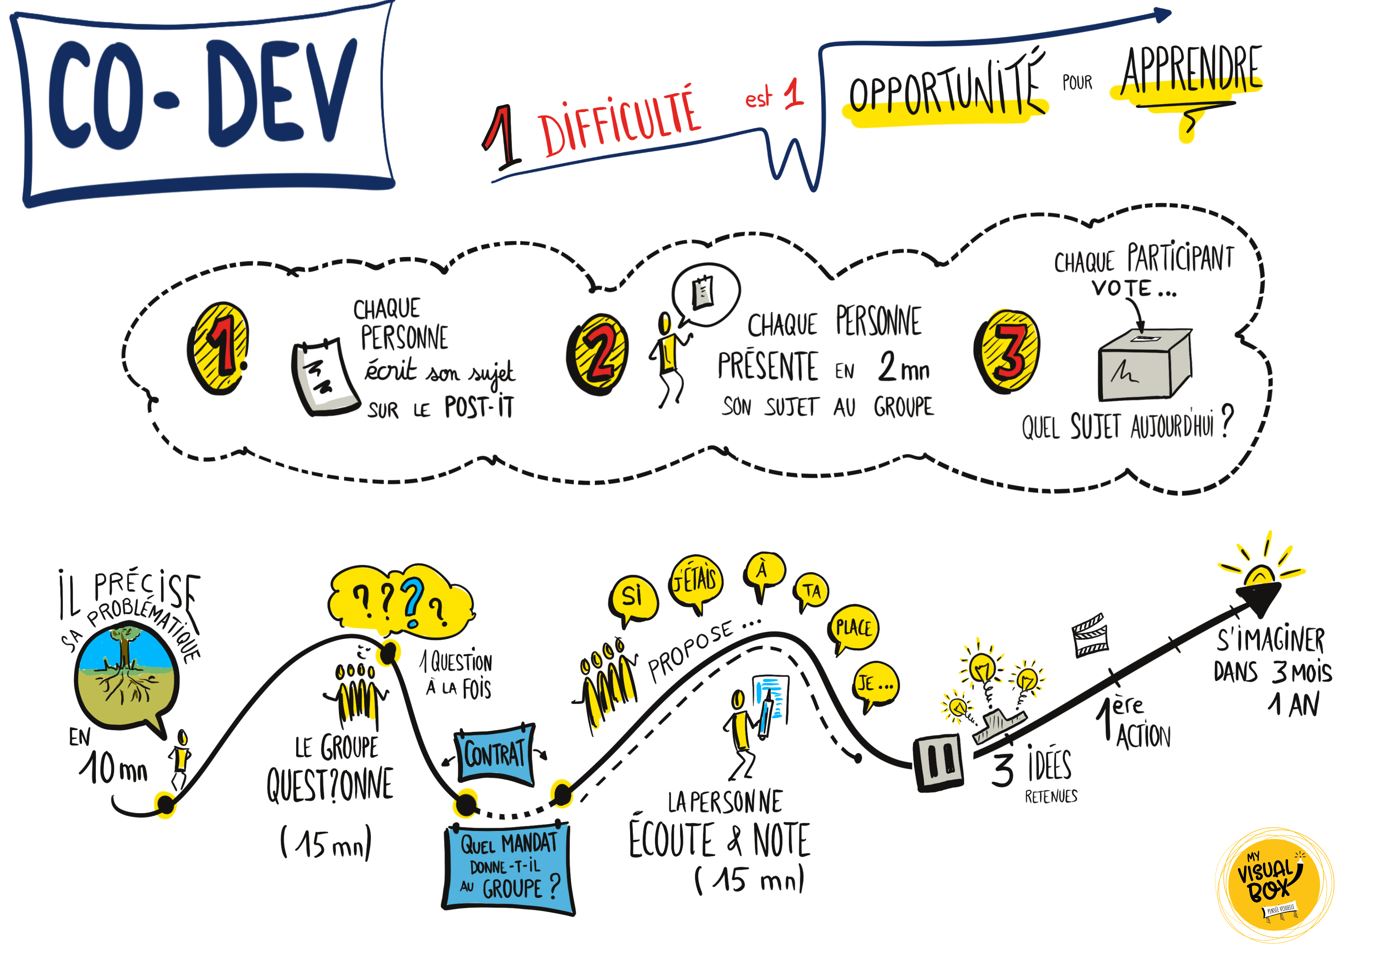 CO-DEV
1 DIFFICULTÉ est 1 OPPORTUNITÉ POUR APPRENDRE
1.
CHAQUE
PERSONNE
écrit son sujet
SUR LE POST-IT
2
CHAQUE PERSONNE
PRÉSENTE EN 2mn
SON SUJET AU GROUPE
3
CHAQUE PARTICIPANT
VOTE...
QUEL SUJET AUJOURD'HUI ?
IL PRÉCISE
SA PROBLÉMATIQUE
EN
10 mn
? ? ? ?
1 QUESTION
À LA FOIS
LE GROUPE
QUEST?ONNE
(15 mn)
CONTRAT
QUEL MANDAT
DONNE-T-IL
AU GROUPE ?
PROPOSE ...
SI
J'ÉTAIS
À
TA
PLACE
JE ...
LA PERSONNE
ÉCOUTE & NOTE
(15 mn)
3 IDÉES
RETENUES
1ère
ACTION
S'IMAGINER
DANS 3 MOIS
1 AN
MY
VISUAL
BOX
PENSÉE VISUELLE